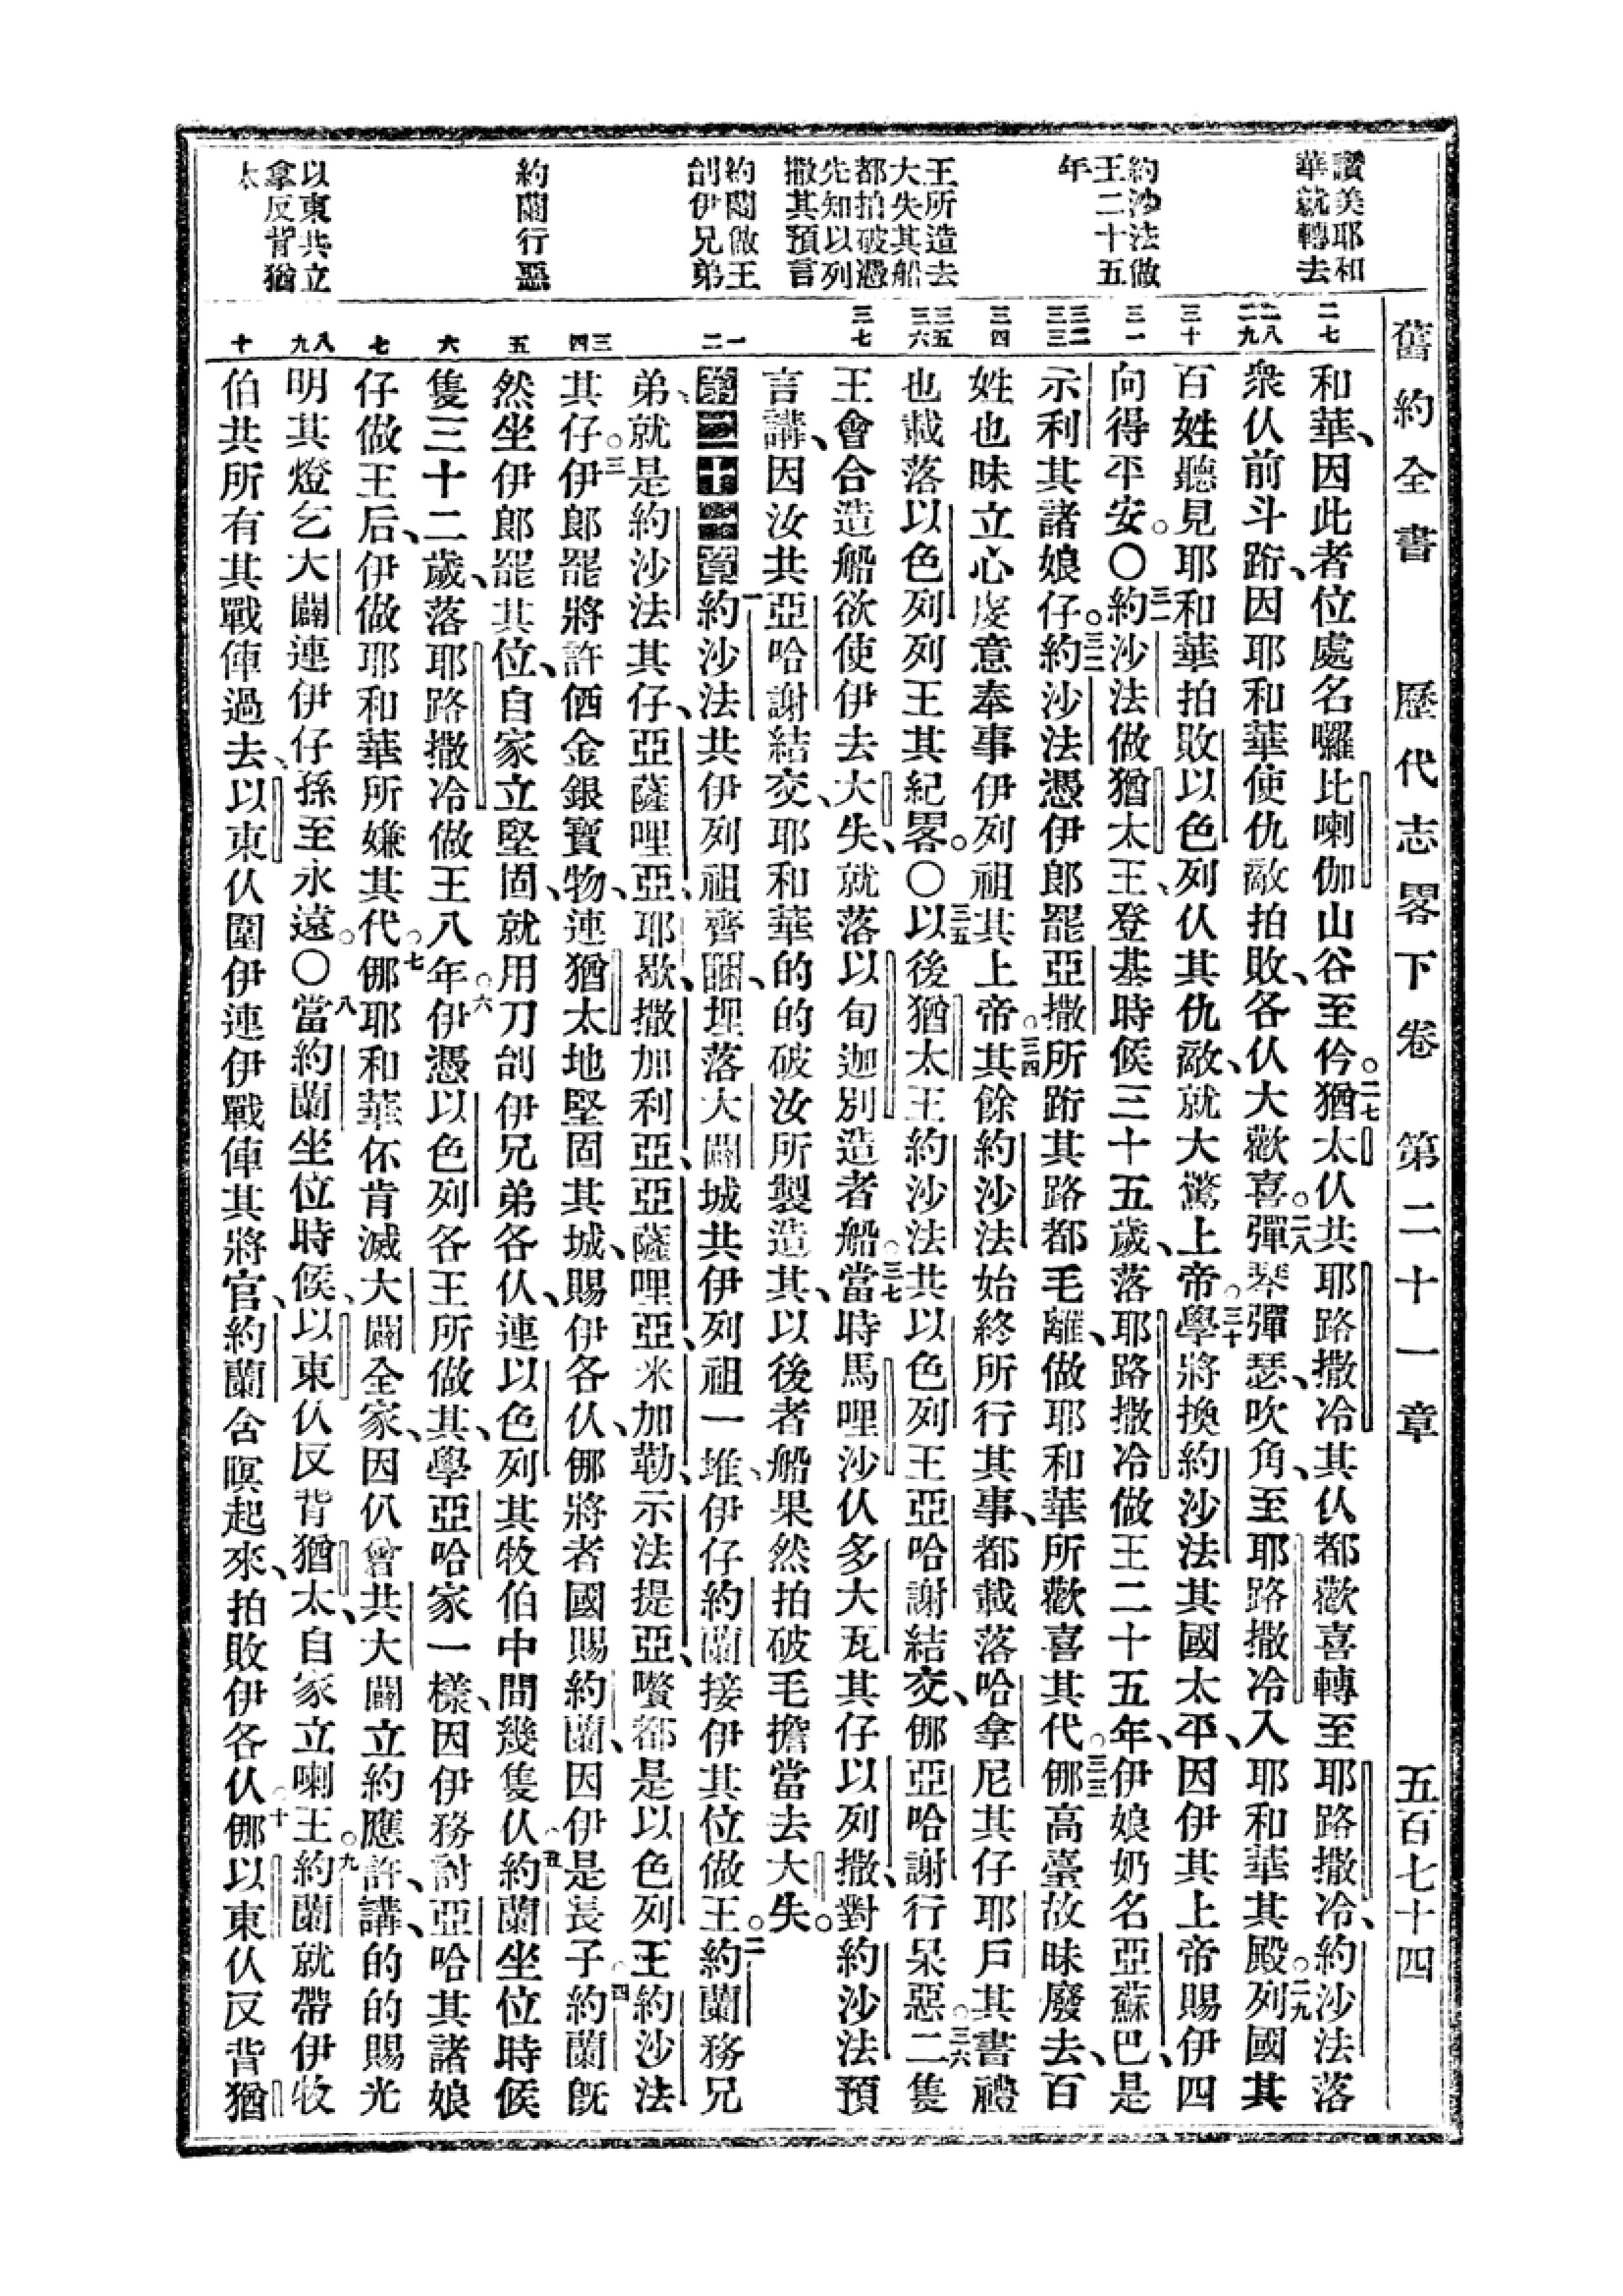 舊約全書 歷代志畧下卷 第二十一章 五百七十四
讚美耶和
華就轉去
約沙法做
王二十五
年
王所造去
大失其船
都拍破憑
先知以列
撒其預言
約蘭做王
刣伊兄弟
約蘭行惡
以東共立
拿反背猶
太
二七
二八
二九
三十
三一
三二
三三
三四
三五
三六
三七
一
二
三
四
五
六
七
八
九
十
和華、因此者位處名囉比喇伽山谷至伱。二七猶太仈共耶路撒冷其仈都歡喜轉至耶路撒冷、約沙法落
衆仈前斗跨、因耶和華使仇敵拍敗、各仈大歡喜。二八彈琴彈瑟、吹角、至耶路撒冷入耶和華其殿。二九列國其
百姓聽見耶和華拍敗以色列仈其仇敵、就大驚上帝。三十學將換約沙法其國太平、因伊其上帝賜伊四
向得平安。〇三一約沙法做猶太王、登基時候三十五歲、落耶路撒冷做王二十五年、伊娘奶名亞蘇巴、是
示利其諸娘仔。三二約沙法憑伊郎罷亞撒所跨其路都毛離、做耶和華所歡喜其代。三三倻高臺故昧廢去、百
姓也昧立心虔意奉事伊列祖其上帝。三四其餘約沙法始終所行其事、都載落哈拿尼其仔耶戶其書禮
也載落以色列列王其紀畧。〇三五以後猶太王約沙法共以色列王亞哈謝結交、倻亞哈謝行呆惡。三六二隻
王會合造船欲使伊去大失、就落以旬迦別造者船。三七當時馬哩沙仈多大瓦其仔以列撒、對約沙法預
言講、因汝共亞哈謝結交、耶和華的的破汝所製造其、以後者船果然拍破毛擔當去大失。
第二十一章 一約沙法共伊列祖齊睏、埋落大闢城共伊列祖一堆、伊仔約蘭接伊其位做王。二約蘭務兄
弟、就是約沙法其仔、亞薩哩亞、耶歇、撒加利亞、亞薩哩亞、米加勒、示法提亞、囋都是以色列王約沙法
其仔。三伊郎罷將許価金銀寶物、連猶太地堅固其城、賜伊各仈、倻將者國賜約蘭、因伊是長子。四約蘭旣
然坐伊郎罷其位、自家立堅固、就用刀刣伊兄弟各仈、連以色列其牧伯中間幾隻仈。五約蘭坐位時候
隻三十二歲、落耶路撒冷做王八年。六伊憑以色列各王所做其、學亞哈家一樣、因伊務討亞哈其諸娘
仔做王后、伊做耶和華所嫌其代。七倻耶和華伓肯滅大闢全家、因仈曾共大闢立約應許、講、的的賜光
明其燈乞大闢連伊仔孫至永遠。〇八當約蘭坐位時候、以東仈反背猶太、自家立喇王。九約蘭就帶伊牧
伯共所有其戰俥過去、以東仈圍伊連伊戰俥其將官、約蘭含暝起來、拍敗伊各仈。十倻以東仈反背猶